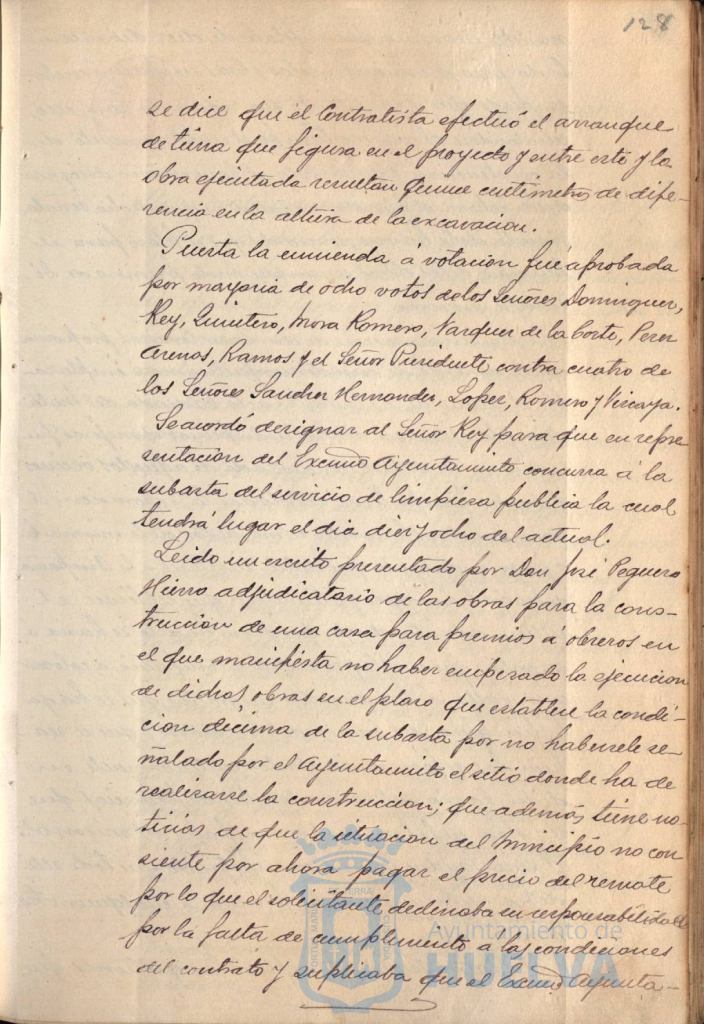 128
se dice que el Contratista efectuó el arranque
de tierra que figura en el proyecto y entre esto y la
obra ejecutada resultan quince centimetros de dife-
rencia en la altura de la excavacion.
Puesta la enmienda á votacion fué aprobada
por mayoria de ocho votos de los Señores Dominguez,
Rey, Quintero, Mora Romero, Vazquez de la Corte, Perez
Arenas, Ramos y el Señor Presidente contra cuatro de
los Señores Sanchez Hernandez, Lopez, Romero y Vizcaya.
Se acordó designar al Señor Rey para que en repre
sentacion del Excmo Ayuntamiento concurra á la
subasta del servicio de limpieza publica la cual
tendrá lugar el dia diez y ocho del actual.
Leido un escrito presentado por Don José Peguero
Hierro adjudicatario de las obras para la cons-
truccion de una casa para premios á obreros en
el que manifiesta no haber empezado la ejecucion
de dichas obras en el plazo que establece la condi-
cion décima de la subasta por no habersele se-
ñalado por el Ayuntamiento el sitio donde ha de
realizarse la construccion; que además tiene no-
ticias de que la situacion del Municipio no con
siente por ahora pagar el precio del remate
por lo que el solicitante declinaba su responsabilidad
por la falta de cumplimento a las condiciones
del contrato y suplicaba que el Excmo Ayunta-
Ayuntamiento de
HUELVA